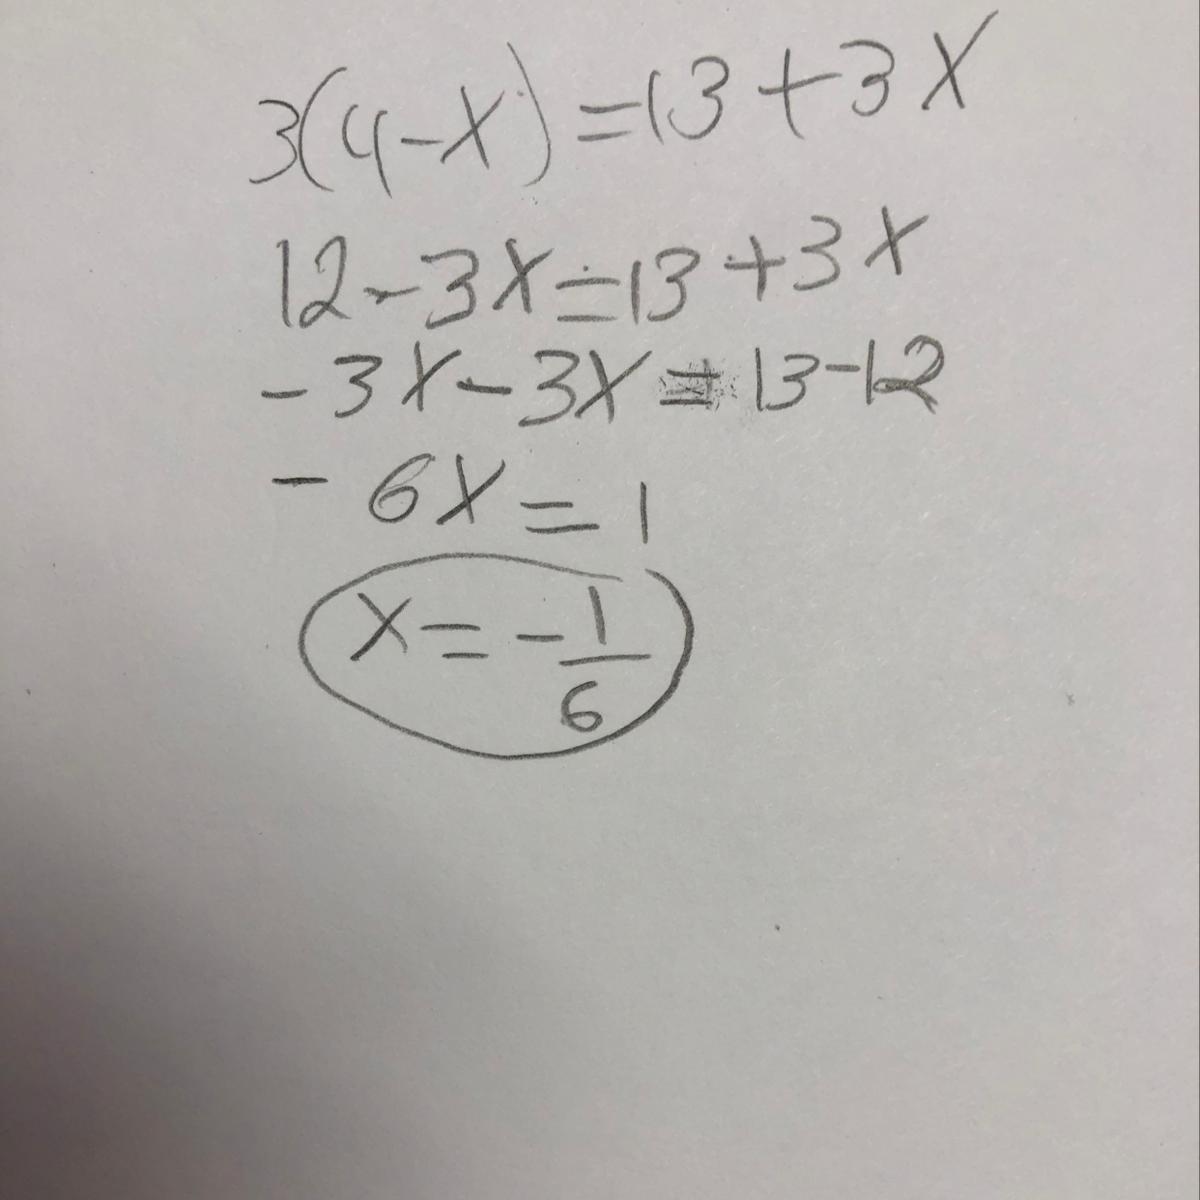 3(4-x)=13+3x
12-3x=13+3x
-3x-3x=13-12
-6x=1
x=-1/6